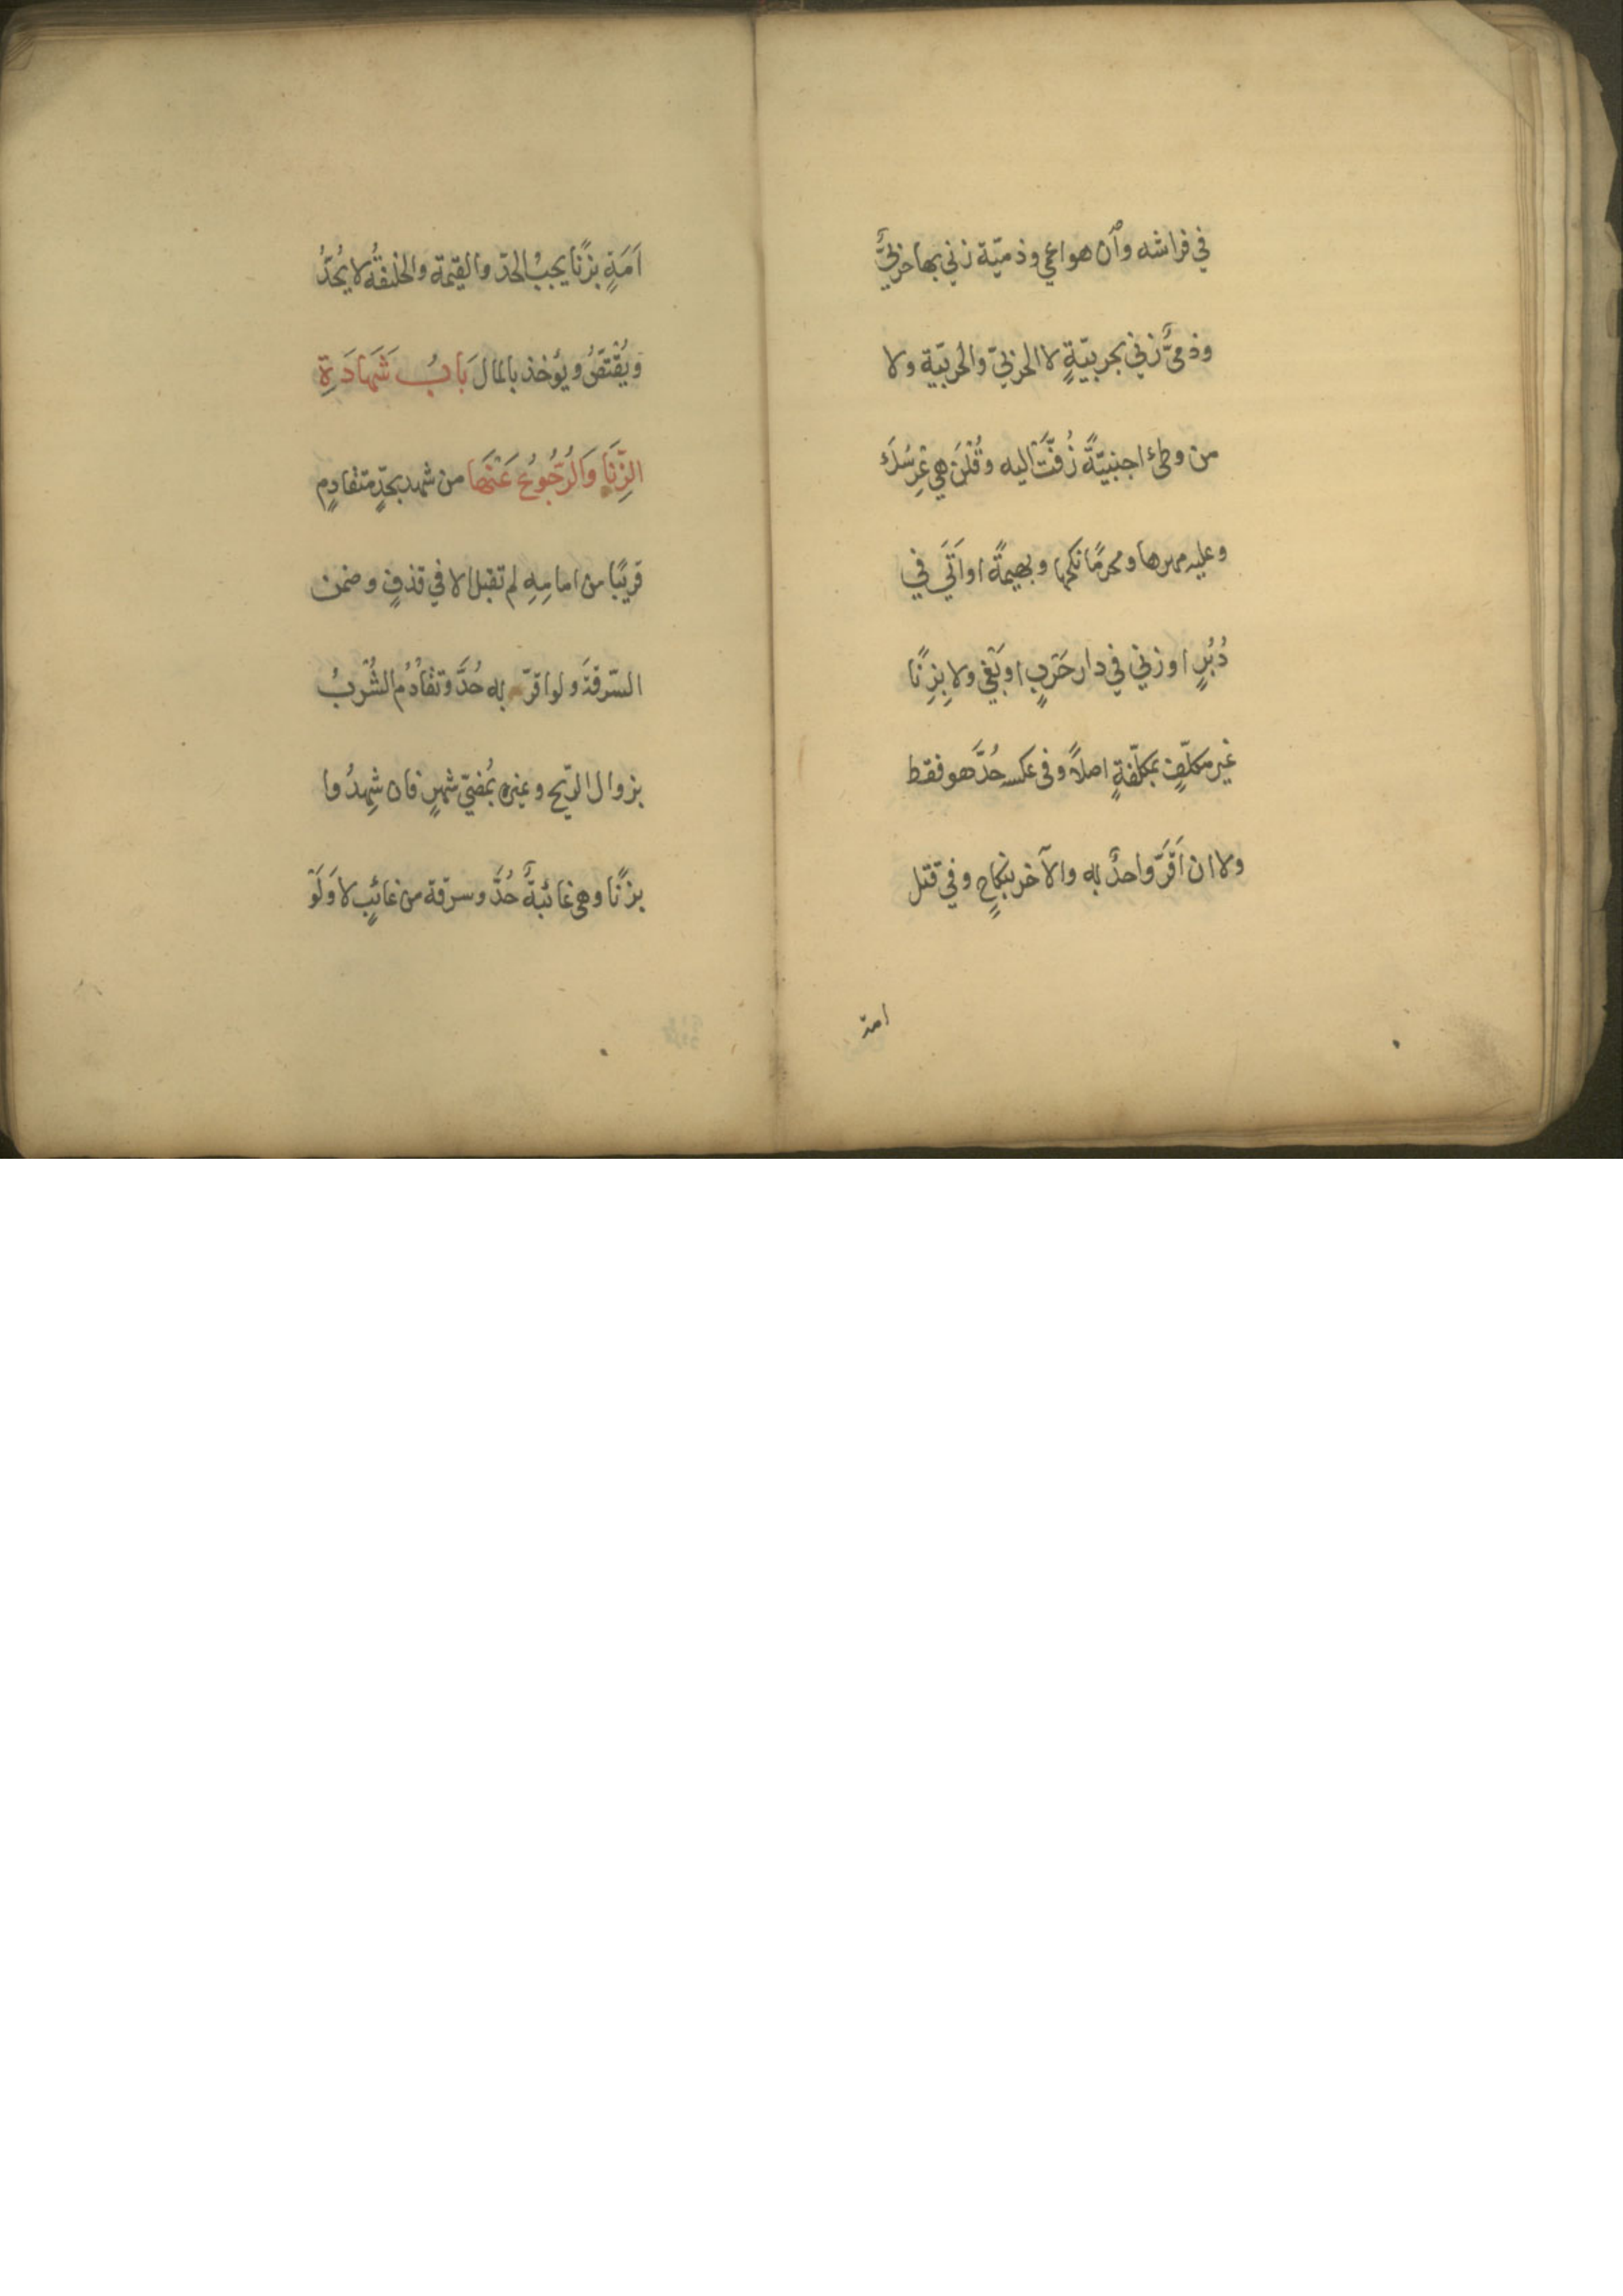 في فراشه وٱن هو اعمي وذميّة زني بها حربيٌّ
وذمىٌّ زني بحربيّةٍ لا الحربيّ والحربيّة ولا
من وطئ اجنبيّةً زُفّتْ اليه وقُلْنَ هي عِرسُكَ
وعليه مهرها ومحرمًا نكحها وبهيمةً او اَتَي في
دُبُرٍ او زني في دار حَرْبٍ او بَغْي ولا بِزِنًا
غير مكلّفٍ بمكلّفةٍ اصلاً وفى عكسه حُدَّ هو فقط
ولا ان اَقَرَّ واحدٌ به والآخر بنكاحٍ وفي قتل
امة
اَمَةٍ بزنًا يجبُ الحدّ والقيمة والخليفةُ لا يُحَدُّ
وَيُقْتَصُّ ويؤخذ بالمال بَابُ شَهَادَةِ
الزِّنَا وَالرُّجُوعُ عَنْهَا من شهد بحدٍّ متقادمٍ
قريبًا من امامِهِ لم تقبل الا في قذفٍ وضمن
السّرقةَ ولو اقرّ به حُدَّ وتقادُم الشُّرْبُ
بزوال الرّيح وغيره بمُضيّ شهرٍ فان شهِدُوا
بزنًا وهى غائبةٌ حُدَّ وسرقة من غائبٍ لا وَلَوْ